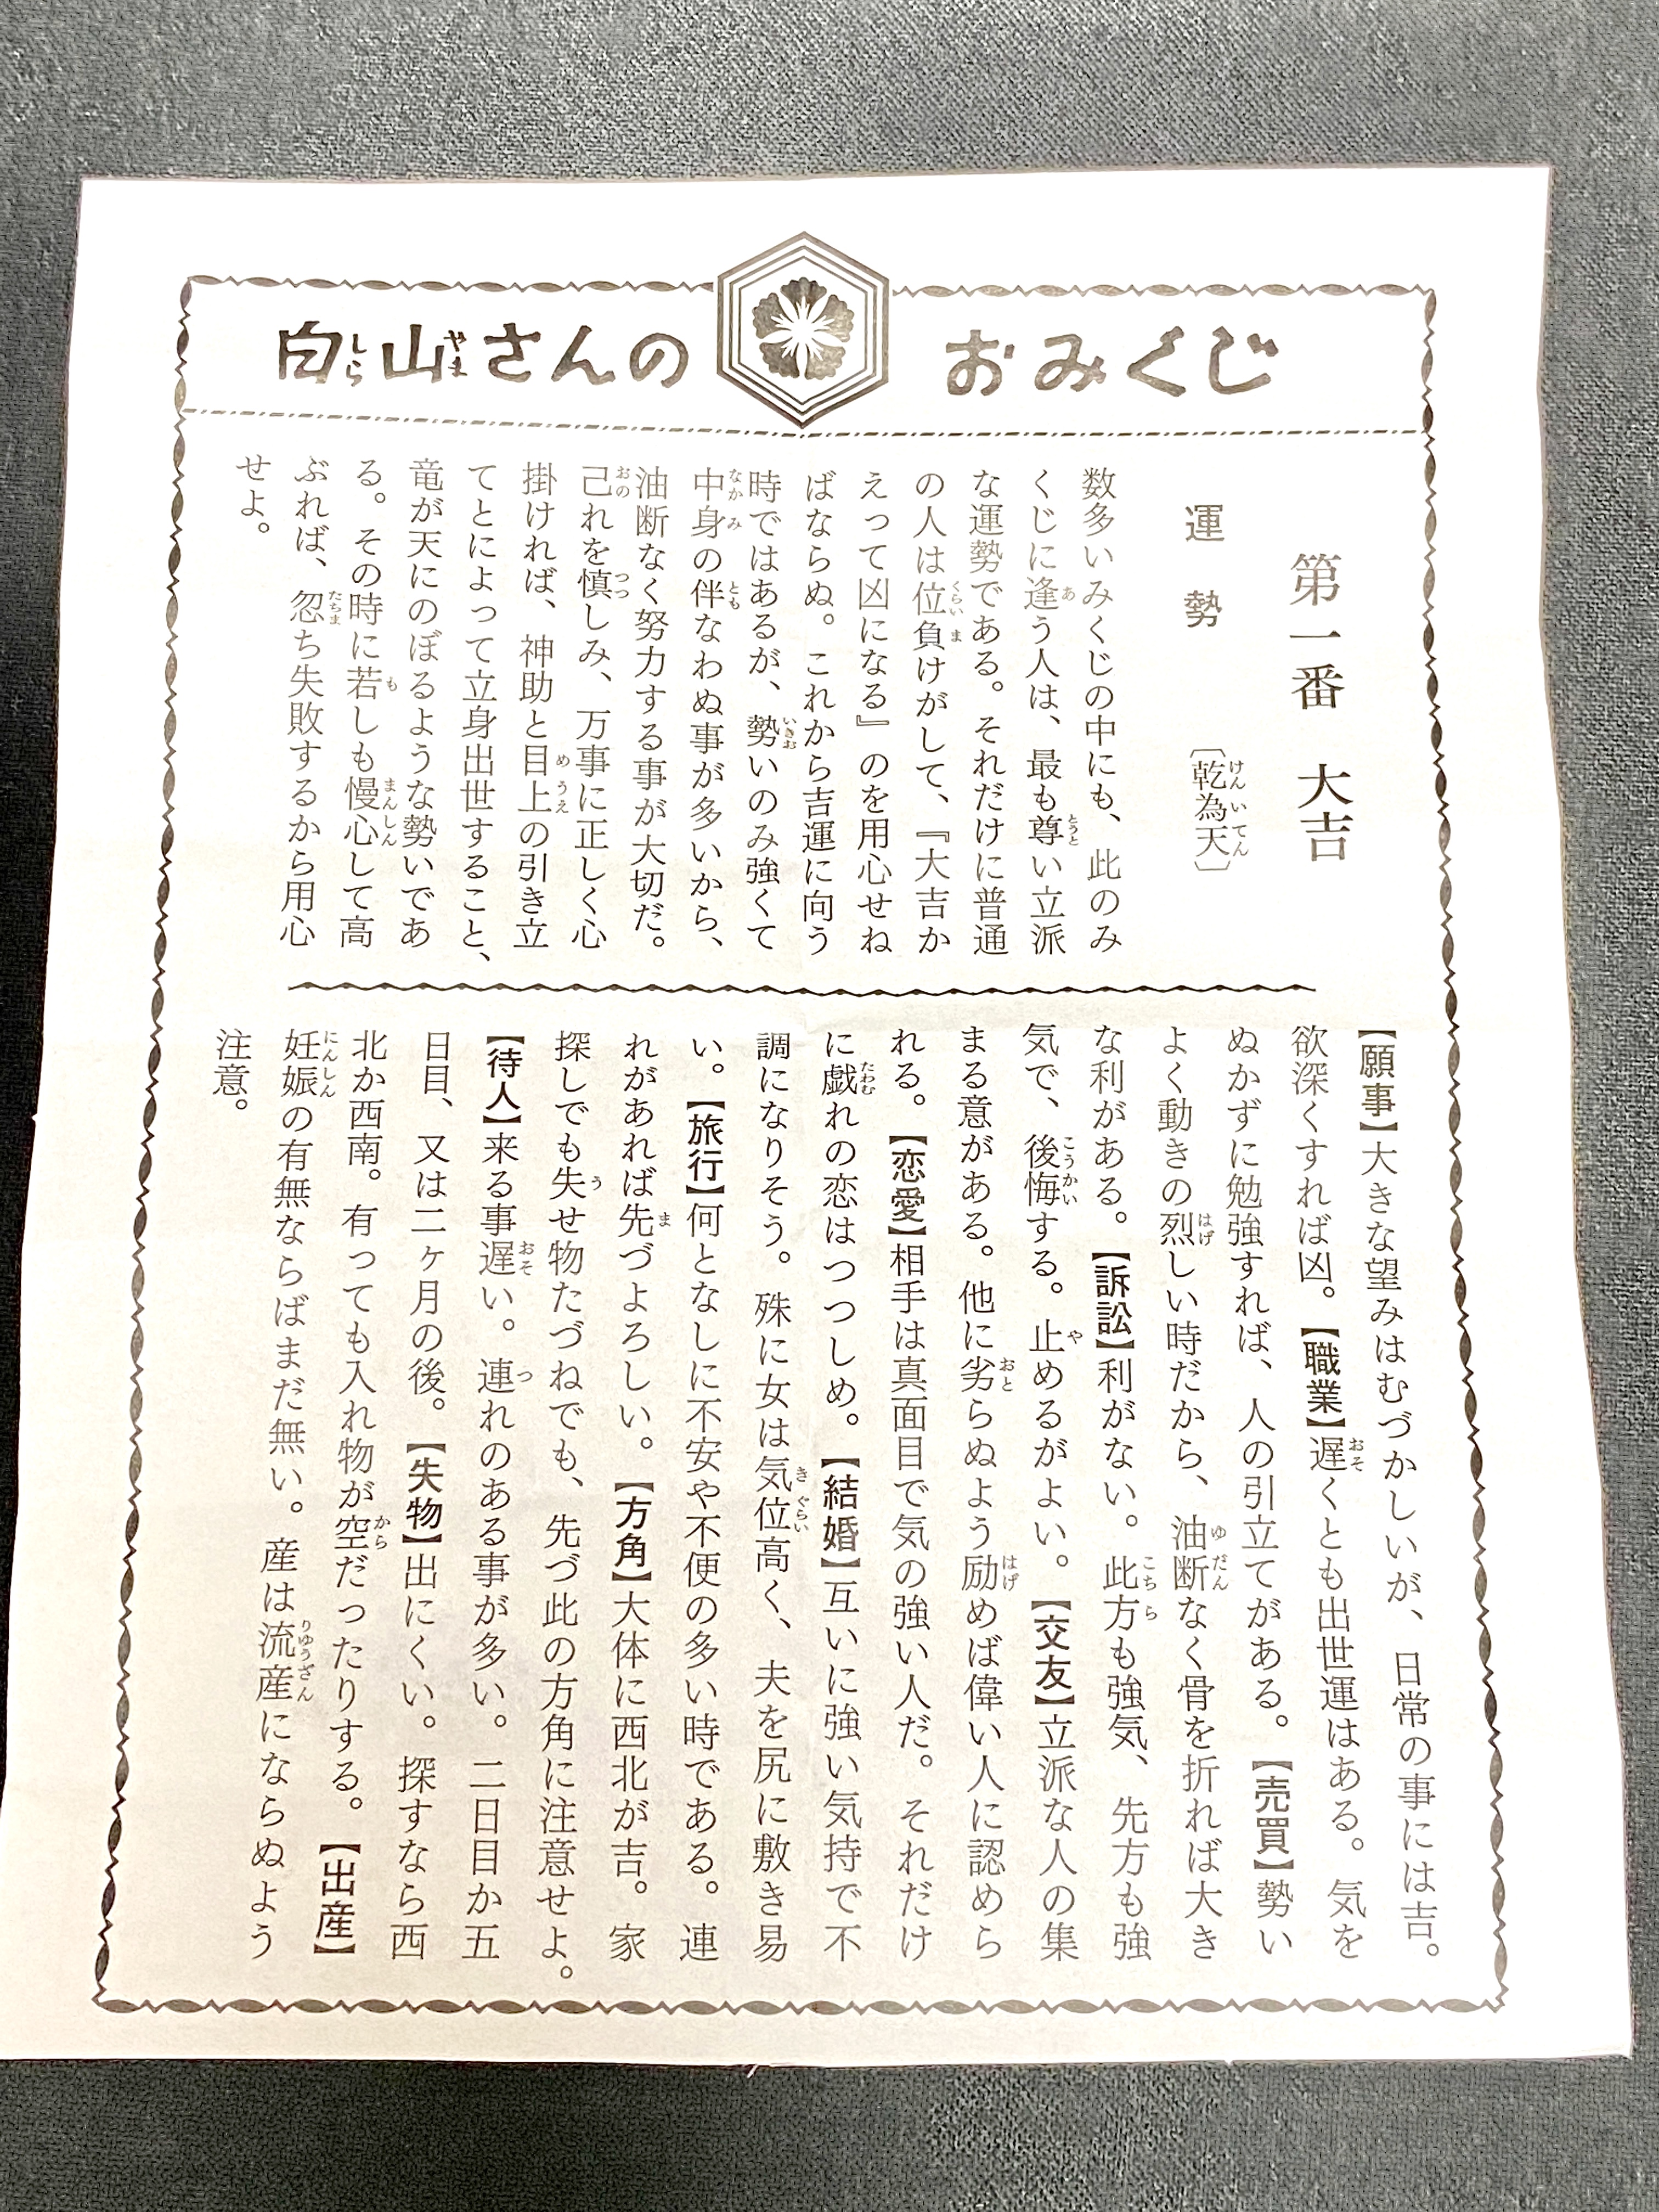 白山さんの おみくじ
第一番 大吉
運勢 〔乾為天〕
数多いみくじの中にも、此のみ
くじに逢う人は、最も尊い立派
な運勢である。それだけに普通
の人は位負けがして、『大吉か
えって凶になる』のを用心せね
ばならぬ。これから吉運に向う
時ではあるが、勢いのみ強くて
中身の伴なわぬ事が多いから、
油断なく努力する事が大切だ。
己れを慎しみ、万事に正しく心
掛ければ、神助と目上の引き立
てとによって立身出世すること、
竜が天にのぼるような勢いであ
る。その時に若しも慢心して高
ぶれば、忽ち失敗するから用心
せよ。
【願事】大きな望みはむづかしいが、日常の事には吉。
欲深くすれば凶。【職業】遅くとも出世運はある。気を
ぬかずに勉強すれば、人の引立てがある。【売買】勢い
よく動きの烈しい時だから、油断なく骨を折れば大き
な利がある。【訴訟】利がない。此方も強気、先方も強
気で、後悔する。止めるがよい。【交友】立派な人の集
まる意がある。他に劣らぬよう励めば偉い人に認めら
れる。【恋愛】相手は真面目で気の強い人だ。それだけ
に戯れの恋はつつしめ。【結婚】互いに強い気持で不
調になりそう。殊に女は気位高く、夫を尻に敷き易
い。【旅行】何となしに不安や不便の多い時である。連
れがあれば先づよろしい。【方角】大体に西北が吉。家
探しでも失せ物たづねでも、先づ此の方角に注意せよ。
【待人】来る事遅い。連れのある事が多い。二日目か五
日目、又は二ヶ月の後。【失物】出にくい。探すなら西
北か西南。有っても入れ物が空だったりする。【出産】
妊娠の有無ならばまだ無い。産は流産にならぬよう
注意。